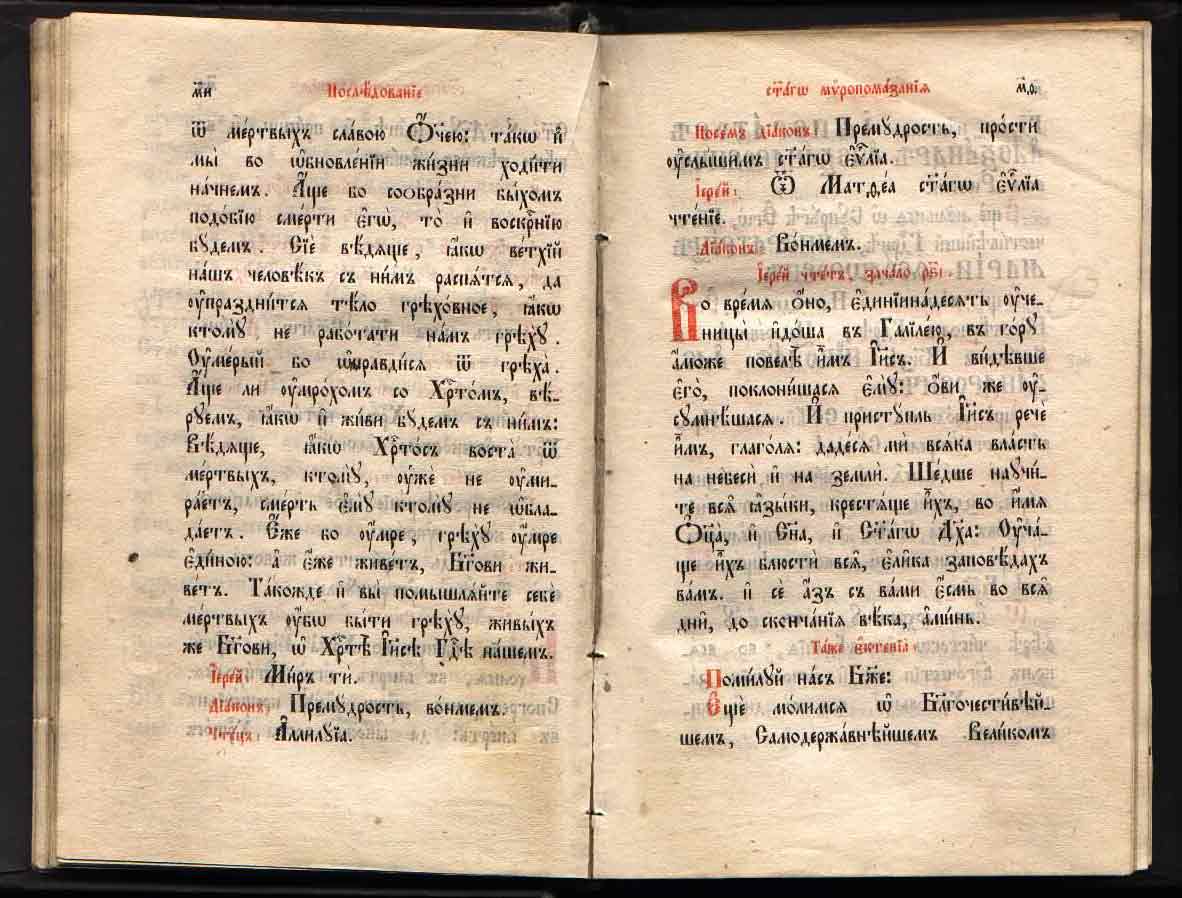 м҃и Послѣ́дованїе
ѿ ме́ртвыхъ сла́вою Ѻ҆́чею: та́кѡ и҆
мы̀ во ѡ҆бновле́нїи жи́зни ходи́ти
на́чнемъ. А҆́ще бо соѻбра́зни бы́хомъ
подо́бїю сме́рти є҆гѡ̀, то̀ и҆ воскрⷭ҇нїю
бу́демъ. Сїѐ вѣ́дѧще, ꙗ҆́кѡ ве́тхїй
на́шъ человѣ́къ съ ни́мъ распѧ́тсѧ, да
ᲂу҆праздни́тсѧ тѣ́ло грѣхо́вное, ꙗ҆́кѡ
ктомꙋ̀ не рабо́тати на́мъ грѣхꙋ̀.
Оу҆ме́рый бо ѡ҆правди́сѧ ѿ грѣха̀.
А҆́ще ли ᲂу҆мро́хомъ со Хрⷭ҇то́мъ, вѣ́-
рꙋемъ, ꙗ҆́кѡ и҆ жи́ви бꙋ́демъ съ ни́мъ:
Вѣ́дѧще, ꙗ҆́кѡ Хрⷭ҇то́съ воста̀ ѿ
ме́ртвыхъ, ктомꙋ̀, ᲂу҆жѐ не ᲂу҆ми-
ра́етъ, сме́рть є҆мꙋ̀ ктомꙋ̀ не ѡ҆бла-
да́етъ. Є҆́же бо ᲂу҆́мре, грѣхꙋ̀ ᲂу҆́мре
є҆ди́ною: а҆ є҆́же живе́тъ, Бг҃ови жи-
ве́тъ. Та́кожде и҆ вы̀ помышлѧ́йте себѐ
ме́ртвыхъ ᲂу҆́бѡ бы́ти грѣхꙋ̀, живы́хъ
же Бг҃ови, ѡ҆ Хрⷭ҇тѣ̀ І҆и҃сѣ Гдⷭ҇ѣ на́шемъ.
І҆ере́й Ми́ръ ти.
Дїа́конъ, Премꙋ́дрость, во́нмемъ.
Чте́цъ. А҆ллилꙋ́їа.
ст҃а́гѡ мѵропома́занїѧ м҃ѳ
Посе́мъ дїа́конъ Премꙋ́дрость, про́сти
ᲂу҆слы́шимъ ст҃а́гѡ є҆ѵⷢ҇лїа.
І҆ере́й: Ѿ Матѳе́а ст҃а́гѡ є҆ѵⷢ҇лїа
чте́нїе.
Дїа́конъ Во́нмемъ.
І҆ере́й чте́тъ, зача́ло рв҃і.
Во вре́мѧ ѻ҆́но, є҆ди́нїинадесѧть ᲂу҆че-
ницы̀ и҆до́ша въ Галїле́ю, въ го́рꙋ
а҆́може повелѣ̀ и҆̀мъ І҆и҃съ. И҆ ви́дѣвше
є҆го̀, поклони́шасѧ є҆мꙋ̀: ѻ҆́ви же ᲂу҆-
сꙋмнѣ́шасѧ. И҆ пристꙋ́пль І҆и҃съ речѐ
и҆̀мъ, глаго́лѧ: даде́сѧ мѝ всѧ́ка вла́сть
на небесѝ и҆ на землѝ. Ше́дше наꙋчи́-
те всѧ̑ ꙗ҆зы́ки, крестѧ́ще и҆̀хъ, во и҆́мѧ
Ѻ҆ц҃а̀, и҆ Сн҃а, и҆ Ст҃а́гѡ Дх҃а: Оу҆ча́-
ще и҆̀хъ блюстѝ всѧ̑, є҆ли̑ка заповѣ́дахъ
ва́мъ. и҆ сѐ а҆́зъ съ ва́ми є҆́смь во всѧ̑
дни̑, до сконча́нїѧ вѣ́ка, а҆ми́нь.
Та́же є҆ктенїа̀.
Поми́лꙋй на́съ Бж҃е:
Є҆щѐ мо́лимсѧ ѡ҆ Бл҃гочести́вѣй-
шемъ, Самодержа́внѣйшемъ Вели́комъ